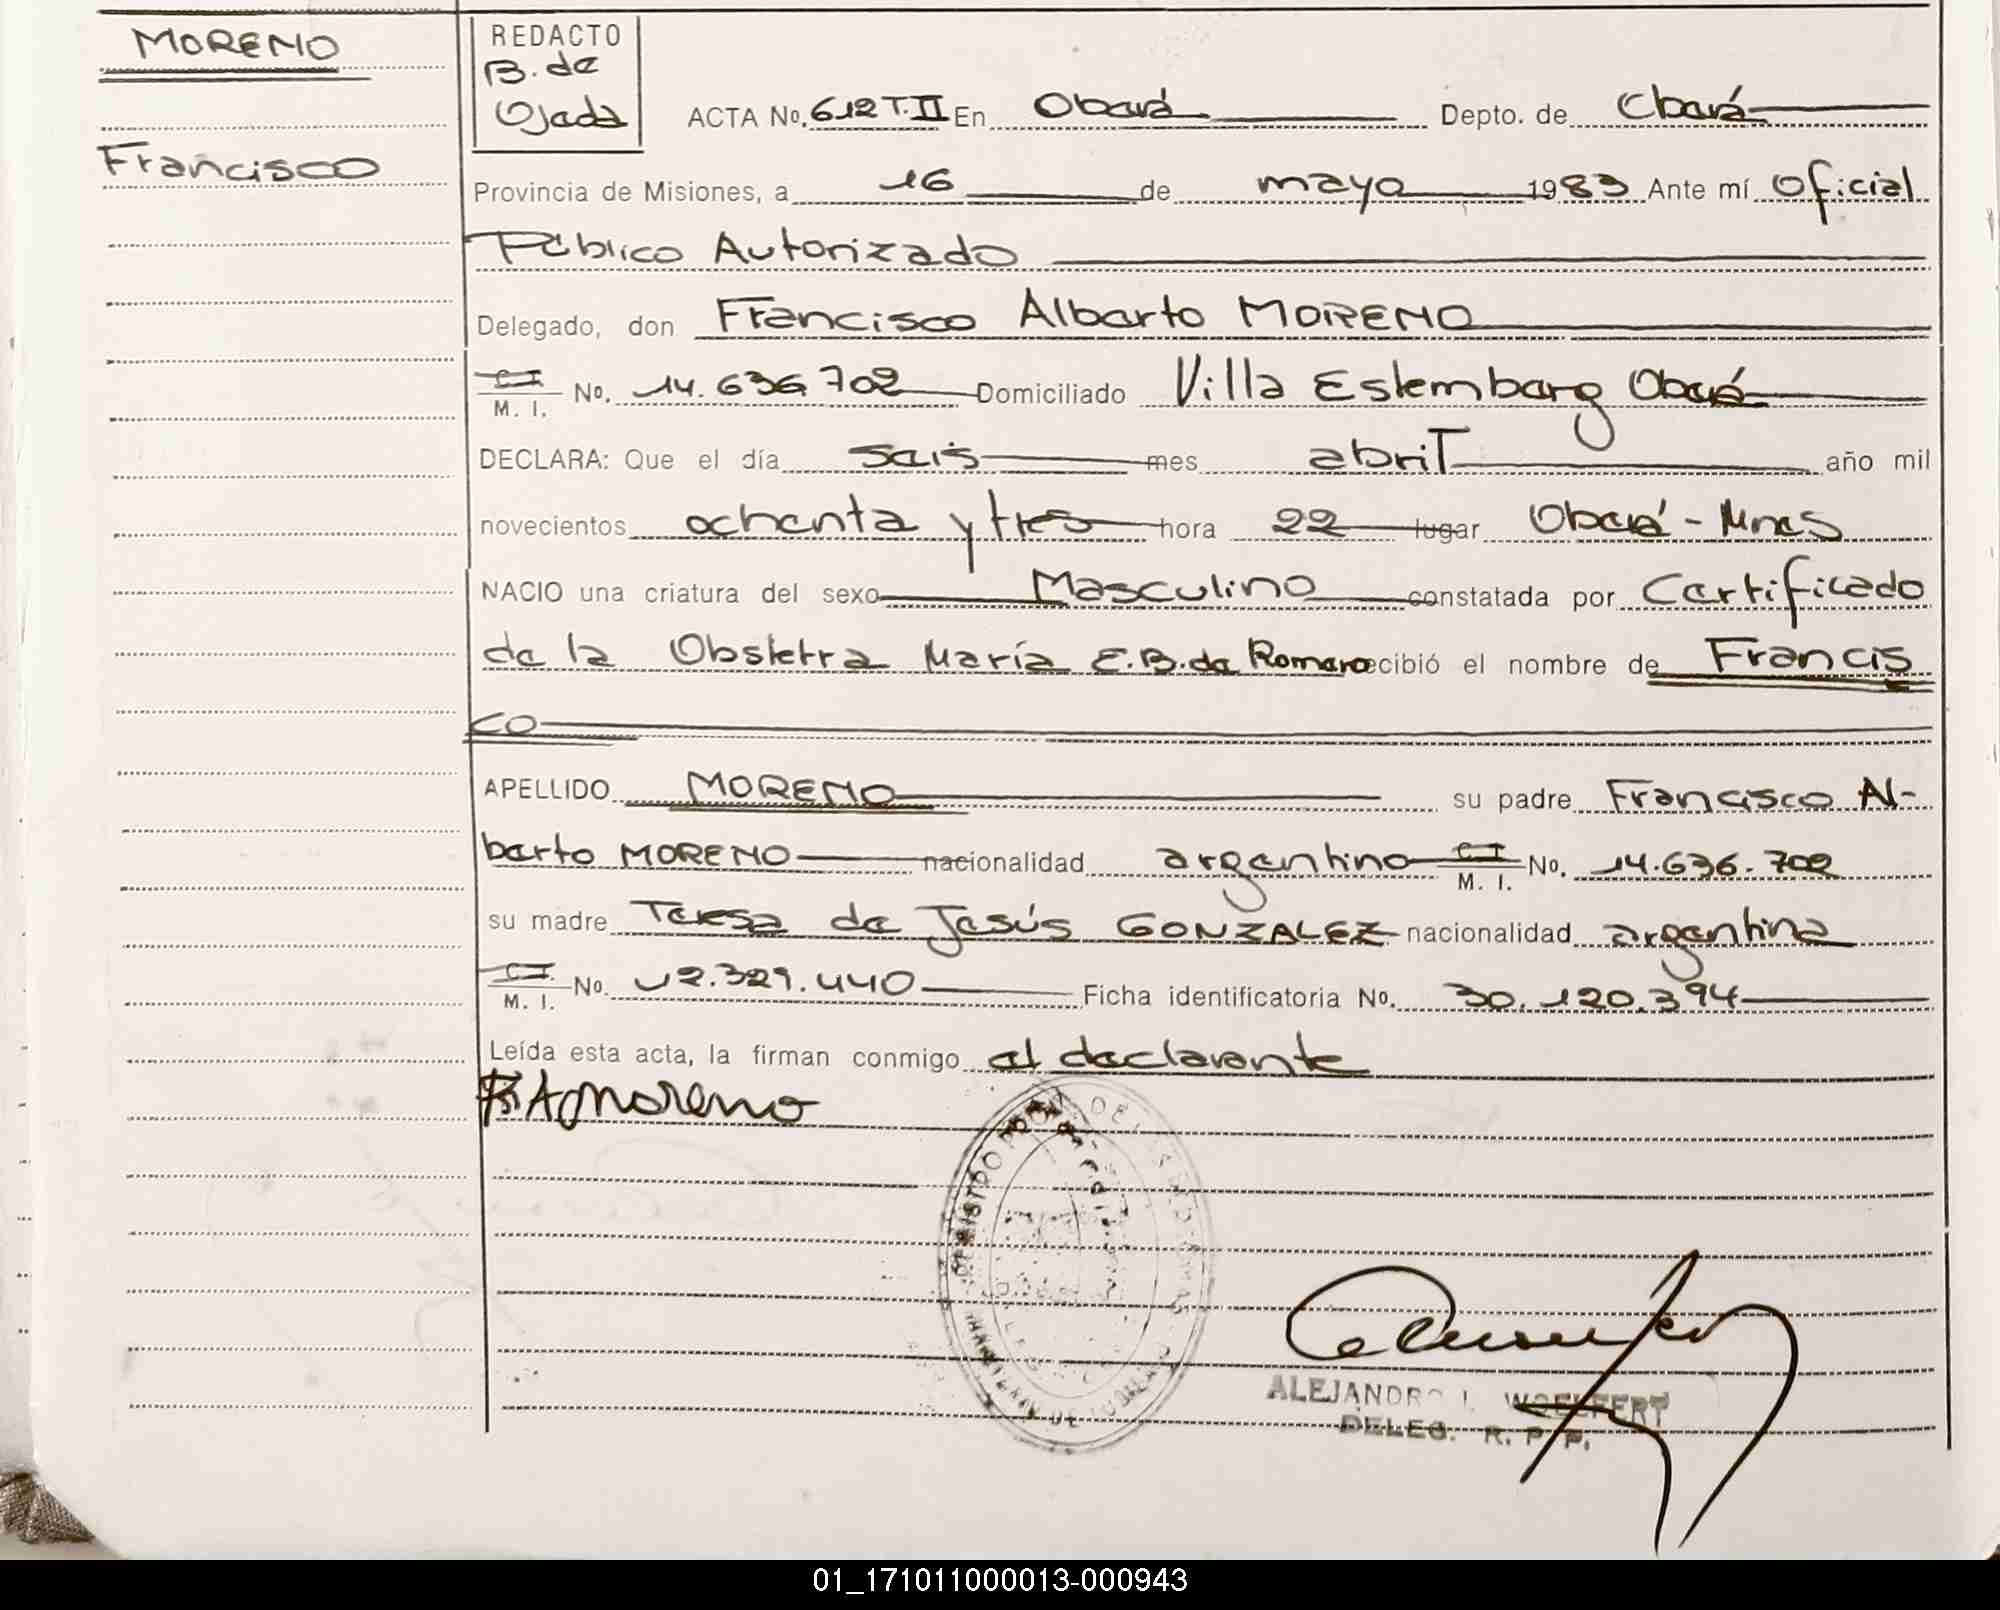 MORENO
Francisco
REDACTO
B. de
Ojeda
ACTA No. 612 T. II En Oberá Depto. de Oberá
Provincia de Misiones, a 16 de mayo 1983 Ante mí Oficial
Público Autorizado
Delegado, don Francisco Alberto MORENO
C I
M. I. No. 14.636.702 Domiciliado Villa Eslemberg Oberá
DECLARA: Que el día seis mes abril año mil
novecientos ochenta y tres hora 22 lugar Oberá - Mnes
NACIO una criatura del sexo Masculino constatada por Certificado
de la Obstetra María E. B. de Romero recibió el nombre de Francis
co
APELLIDO MORENO su padre Francisco Al-
berto MORENO nacionalidad argentino C I
M. I. No. 14.636.702
su madre Teresa de Jesús GONZALEZ nacionalidad argentina
C I.
M. I. No. 12.329.440 Ficha identificatoria No. 30.120.394
Leída esta acta, la firman conmigo el declarante
F A Moreno
ALEJANDRO L. WOELFERT
DELEG. R. P. P.
01_171011000013-000943